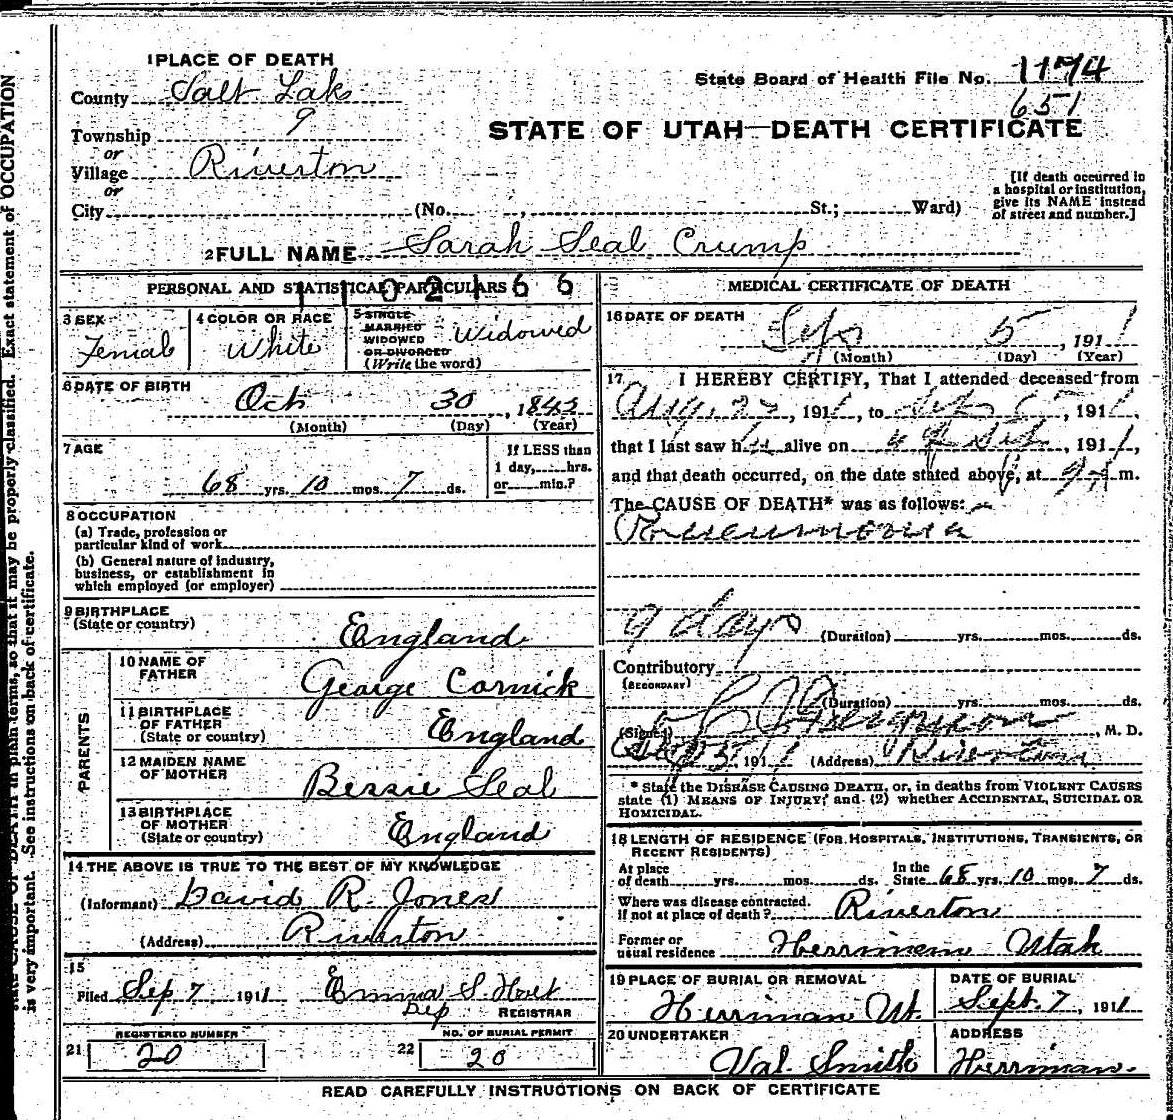 1 PLACE OF DEATH
State Board of Health File No. 1174
651
County Salt Lake
9
STATE OF UTAH—DEATH CERTIFICATE
Township
or
Village Riverton
or
City (No. , St.; Ward)
[If death occurred in
a hospital or institution,
give its NAME instead
of street and number.]
2 FULL NAME Sarah Seal Crump
PERSONAL AND STATISTICAL PARTICULARS
1102166
3 SEX
Female
4 COLOR OR RACE
White
5 SINGLE
MARRIED
WIDOWED
OR DIVORCED
(Write the word)
Widowed
6 DATE OF BIRTH
Oct 30, 1842
(Month) (Day) (Year)
7 AGE
68 yrs. 10 mos. 7 ds.
If LESS than
1 day, hrs.
or min.?
8 OCCUPATION
(a) Trade, profession or
particular kind of work
(b) General nature of industry,
business, or establishment in
which employed (or employer)
9 BIRTHPLACE
(State or country)
England
PARENTS
10 NAME OF
FATHER
George Cornick
11 BIRTHPLACE
OF FATHER
(State or country)
England
12 MAIDEN NAME
OF MOTHER
Bessie Seal
13 BIRTHPLACE
OF MOTHER
(State or country)
England
14 THE ABOVE IS TRUE TO THE BEST OF MY KNOWLEDGE
(Informant) David R. Jones
(Address) Riverton
15
Filed Sep 7 1911 Emma S. Hoet
Dep REGISTRAR
REGISTERED NUMBER
21 20
NO. OF BURIAL PERMIT
22 20
MEDICAL CERTIFICATE OF DEATH
16 DATE OF DEATH
Sep 5, 1911
(Month) (Day) (Year)
17 I HEREBY CERTIFY, That I attended deceased from
Aug. 27, 1911, to Sep 5, 1911,
that I last saw h alive on 4 Sep, 1911,
and that death occurred, on the date stated above, at 9 m.
The CAUSE OF DEATH* was as follows:
Pneumonia
9 days (Duration) yrs. mos. ds.
Contributory
(SECONDARY)
(Duration) yrs. mos. ds.
(Signed) , M. D.
Sep 5 1911 (Address) Riverton
* State the DISEASE CAUSING DEATH, or, in deaths from VIOLENT CAUSES
state (1) MEANS OF INJURY; and (2) whether ACCIDENTAL, SUICIDAL OR
HOMICIDAL.
18 LENGTH OF RESIDENCE (FOR HOSPITALS, INSTITUTIONS, TRANSIENTS, OR
RECENT RESIDENTS)
At place
of death yrs. mos. ds.
In the
State 68 yrs. 10 mos. 7 ds.
Where was disease contracted.
If not at place of death? Riverton
Former or
usual residence Herrimen Utah
19 PLACE OF BURIAL OR REMOVAL
Herriman Ut.
DATE OF BURIAL
Sept. 7, 1911
20 UNDERTAKER
Val. Smith
ADDRESS
Herriman.
READ CAREFULLY INSTRUCTIONS ON BACK OF CERTIFICATE
state CAUSE OF DEATH in plain terms, so that it may be properly classified. Exact statement of OCCUPATION
is very important. See instructions on back of certificate.